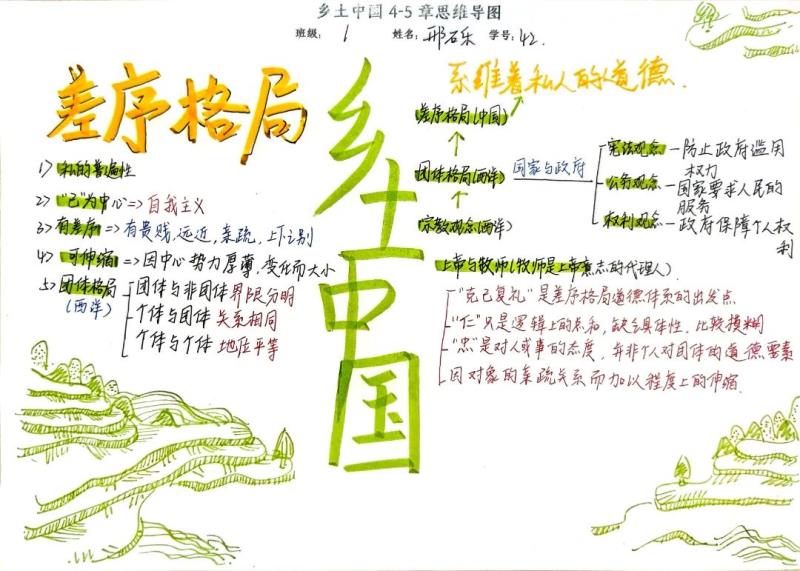 乡土中国4-5章思维导图
班级: 1 姓名: 邢石乐 学号: 42.
差序格局
1) 私的普遍性
2) "己"为中心=>自我主义
3) 有差序=>有贵贱,远近,亲疏,上下之别
4) 可伸缩=>因中心势力厚薄,变化而大小
5) 团体格局(西洋)
团体与非团体界限分明
个体与团体关系相同
个体与个体地位平等
乡土中国
系维着私人的道德.
差序格局(中国)
团体格局(西洋)
国家与政府
宪法观念—防止政府滥用权力
公务观念—国家要求人民的服务
权利观念—政府保障个人权利
宗教观念(西洋)
上帝与牧师(牧师是上帝意志的代理人)
"克己复礼"是差序格局道德体系的出发点
"仁"只是逻辑上的总和,缺乏具体性,比较模糊
"忠"是对人或事的态度,并非个人对团体的道德要素
因对象的亲疏关系而加以程度上的伸缩.